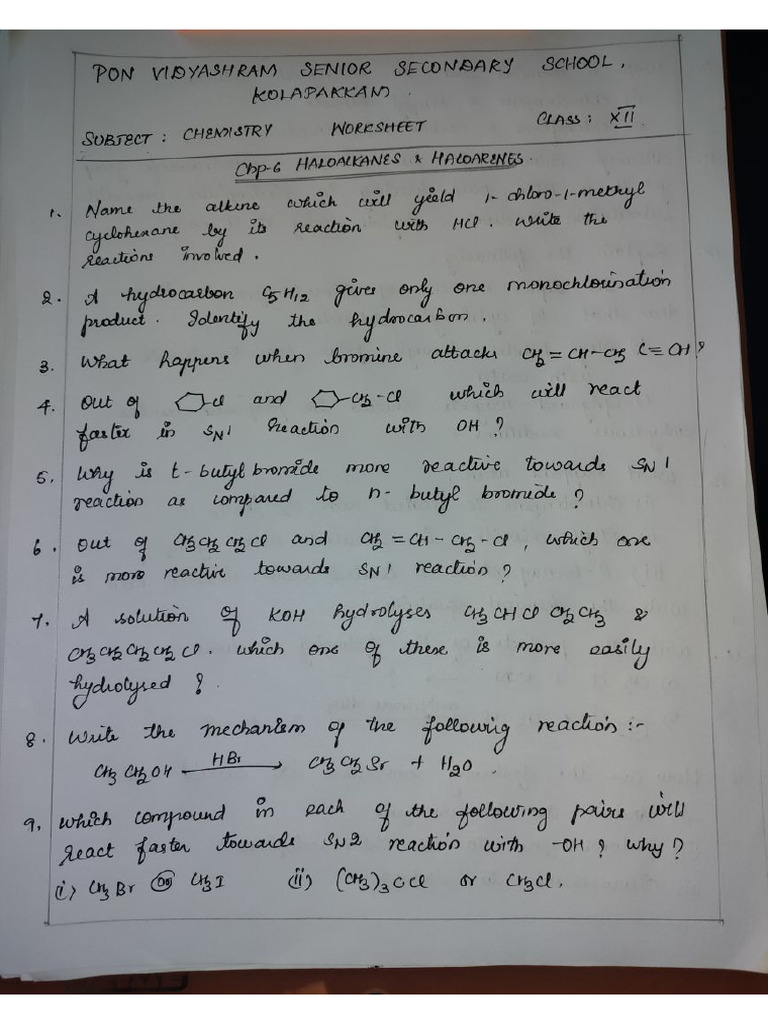 PON VIDYASHRAM SENIOR SECONDARY SCHOOL,
KOLAPAKKAM.
SUBJECT : CHEMISTRY WORKSHEET CLASS : XII
Chp-6 HALOALKANES & HALOARENES.
1. Name the alkene which will yield 1-chloro-1-methyl
cyclohexane by its reaction with HCl. Write the
reactions involved.
2. A hydrocarbon C5H12 gives only one monochlorination
product. Identify the hydrocarbon.
3. What happens when bromine attacks CH2=CH-CH2 C≡CH?
4. Out of -Cl and -CH2-Cl which will react
faster in SN1 reaction with OH?
5. Why is t-butyl bromide more reactive towards SN1
reaction as compared to n-butyl bromide?
6. Out of CH3CH2CH2Cl and CH2=CH-CH2-Cl, which one
is more reactive towards SN1 reaction?
7. A solution of KOH hydrolyses CH3CHClCH2CH3 &
CH3CH2CH2CH2Cl. which one of these is more easily
hydrolysed?
8. Write the mechanism of the following reaction :-
CH3CH2OH HBr → CH3CH2Br + H2O.
9. which compound in each of the following pairs will
react faster towards SN2 reaction with -OH? why?
(i) CH3Br or CH3I (ii) (CH3)3CCl or CH3Cl.